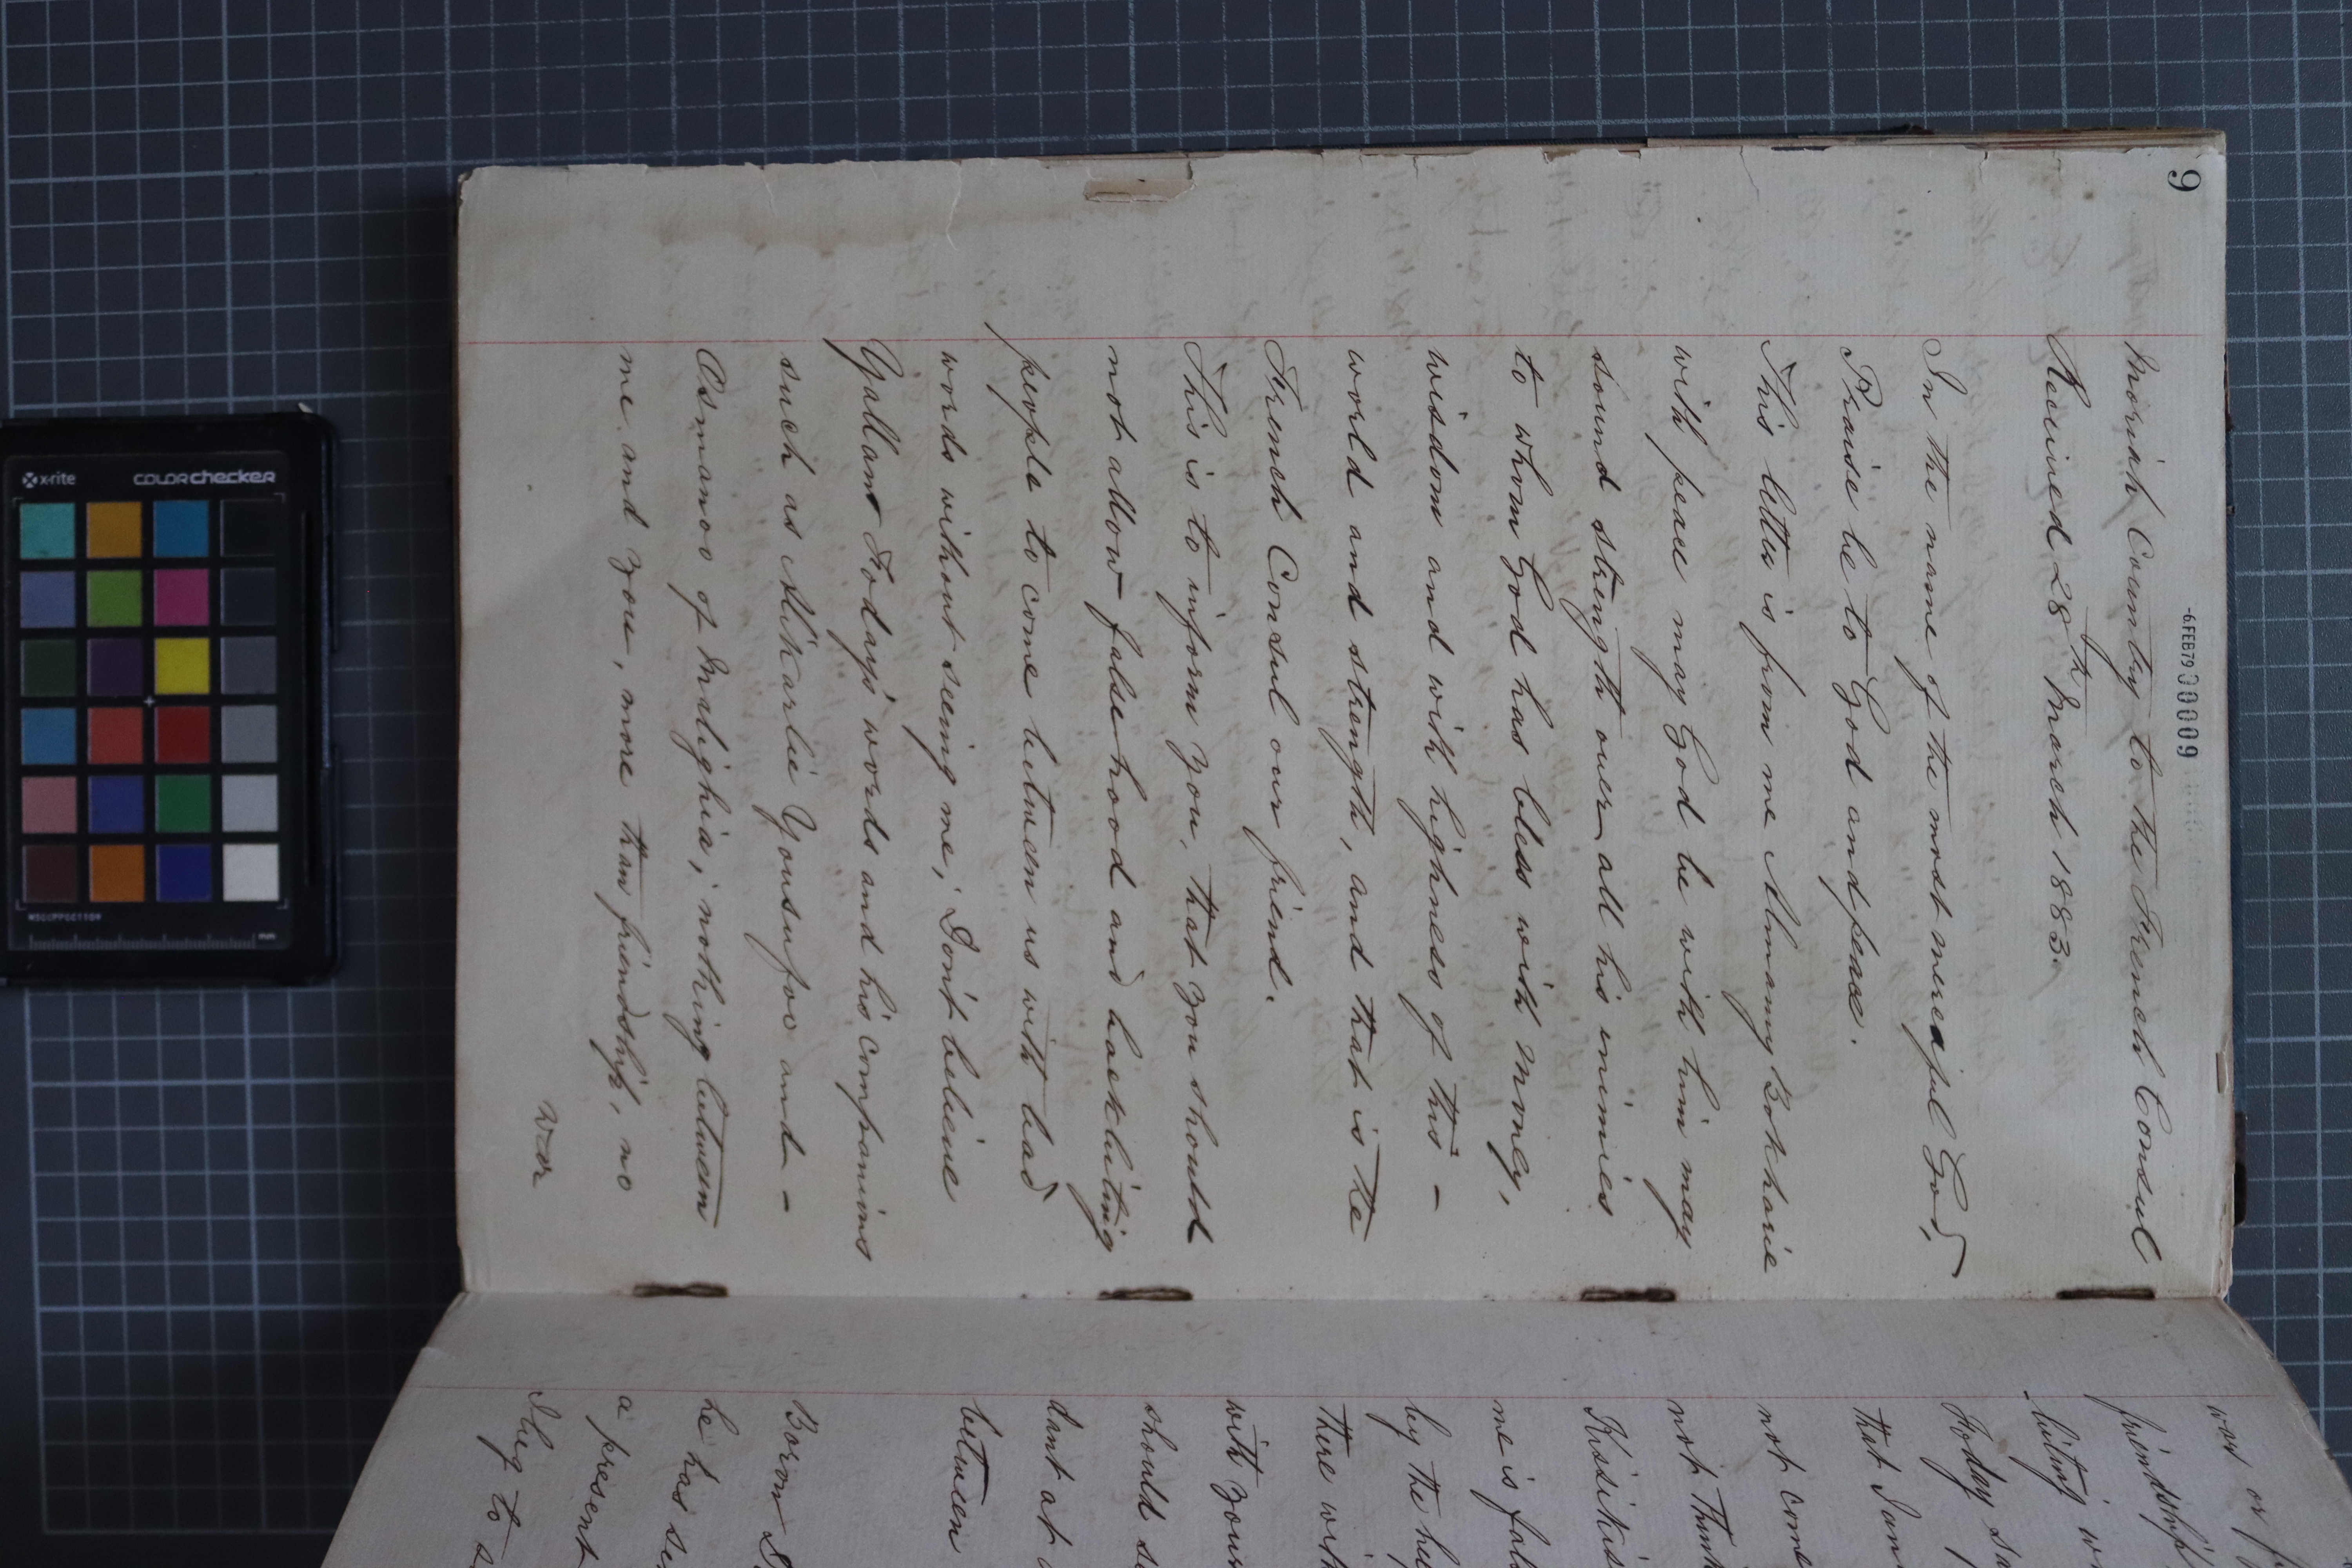 9
-6.FEB79 000009
Moriah Country to the French Consul
Received 28th March 1883.
In the name of the most mereaful God,
Praise be to God and peace.
This letter is from me Almamy Bokharie
with peace may God be with him may
sound strength over all his inimies
to whom God has bless with money,
wisdom and with highness of this -
world and strength, and that is the
French Consul our friend.
This is to inform you, that you should
not allow false-hood and backbiting
people to come between us with bad
words without seeing me; Don't believe
Yallam Foday's words and his companions
such as Alikarlie Yousufoo and -
Osmanoo of Malighia; nothing between
me and you, more than friendship, no
war
war or
friendship
biting
Foday
that I am
not come
not think
Kissikis
me is fal
by the
there wi
with your
should se
dant at
between
Borom
he has se
a present
I beg to s
x-rite
colorchecker
MSCCPPCC1109
mm